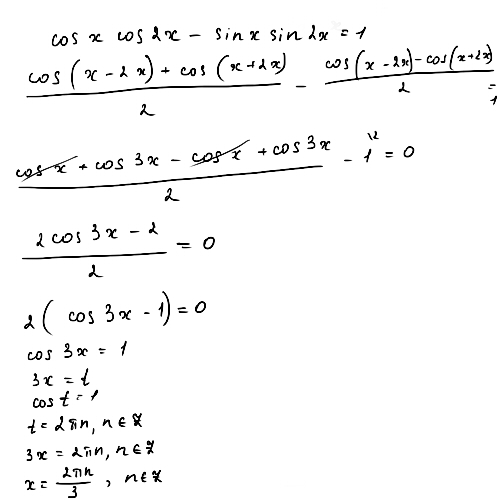 cos x cos 2x - sin x sin 2x = 1
(cos(x-2x) + cos(x+2x))/2 - (cos(x-2x) - cos(x+2x))/2 = 1
(cos x + cos 3x - cos x + cos 3x)/2 - 1^{\2} = 0
(2 cos 3x - 2)/2 = 0
2(cos 3x - 1) = 0
cos 3x = 1
3x = t
cos t = 1
t = 2πn, n ∈ Z
3x = 2πn, n ∈ Z
x = 2πn/3, n ∈ Z